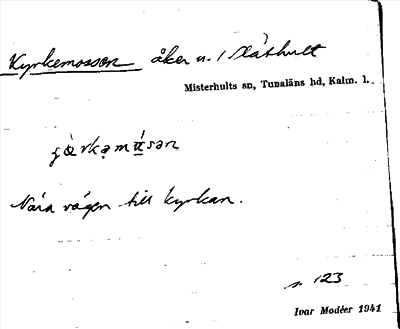 Kyrkemossen åker u. 1 Slåthult
Misterhults sn, Tunaläns hd, Kalm. l.
Nära vägen till kyrkan.
s. 123
Ivar Modéer 1941